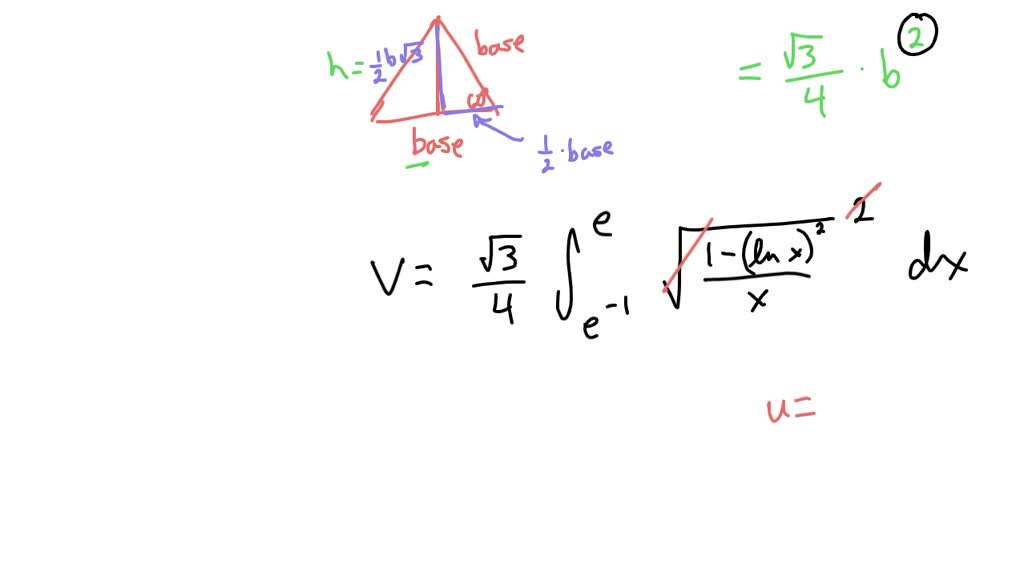 h = 1/2 b√3
base
60°
base
1/2 · base
= √3/4 · b^2
V = √3/4 ∫_{e^-1}^{e} √((1-(ln x)^2)/x)^2 dx
u=